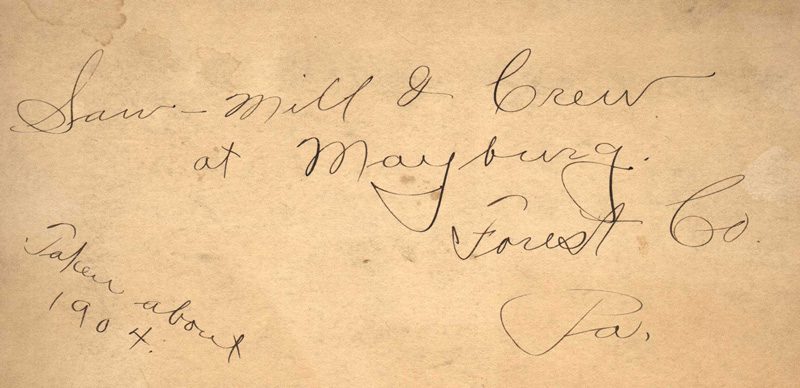 Saw-mill & Crew
at Mayburg.
Forest Co.
Pa.
Taken about
1904.